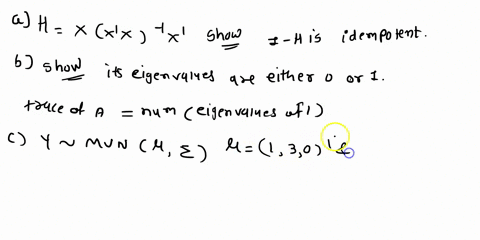 a) H = X (X'X)⁻¹X' show I-H is idempotent.
b) show its eigenvalues are either 0 or 1.
trace of A = num (eigenvalues of 1)
c) Y ~ MVN (μ, Σ) μ = (1, 3, 0) is